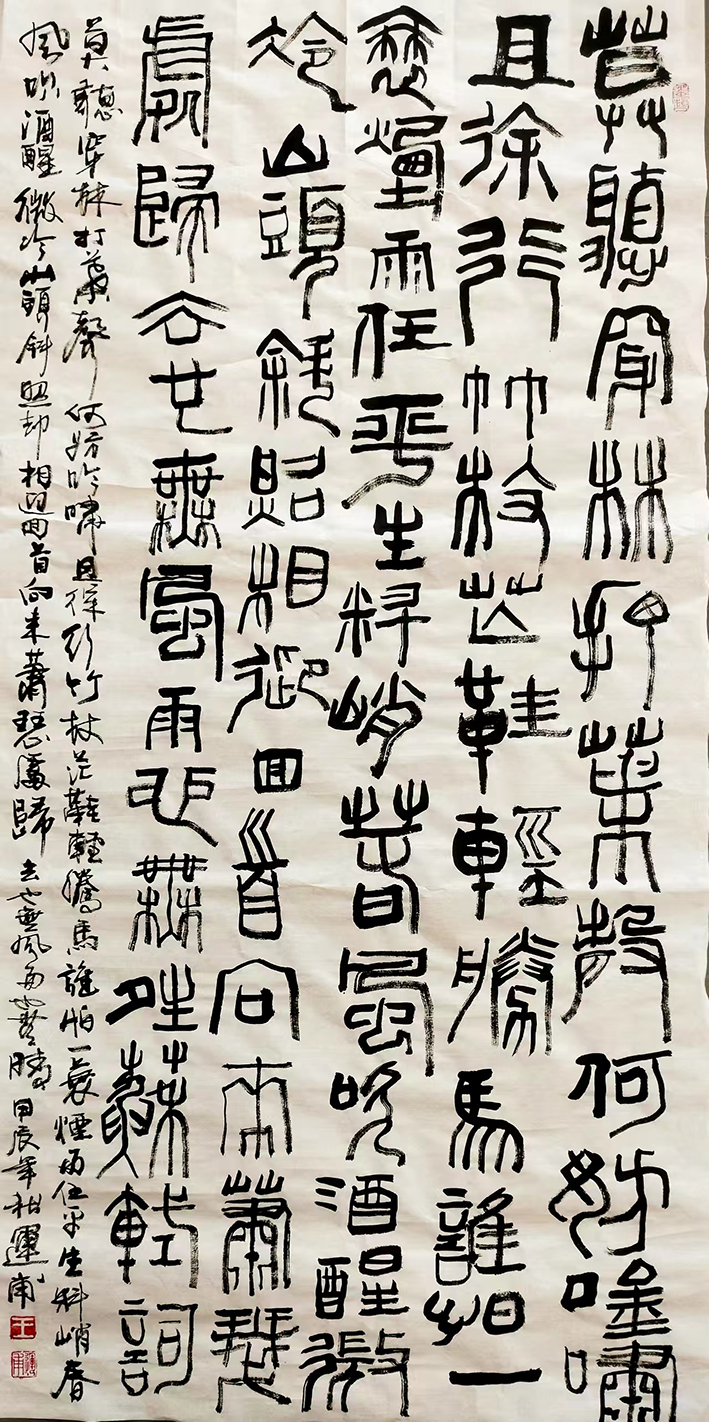 莫聽穿林打葉聲何妨唫嘯
且徐行竹杖芒鞋輕勝馬誰怕一
蓑煙雨任平生料峭春風吹酒醒微
冷山頭斜照相迎回首向來蕭瑟
處歸去也無風雨也無晴蘇軾詞
莫聽穿林打葉聲何妨吟嘯且徐行竹杖芒鞋輕勝馬誰怕一蓑煙雨任平生料峭春
風吹酒醒微冷山頭斜照却相迎回首向來蕭瑟處歸去也無風雨也無晴甲辰年秋運甫
王
運甫